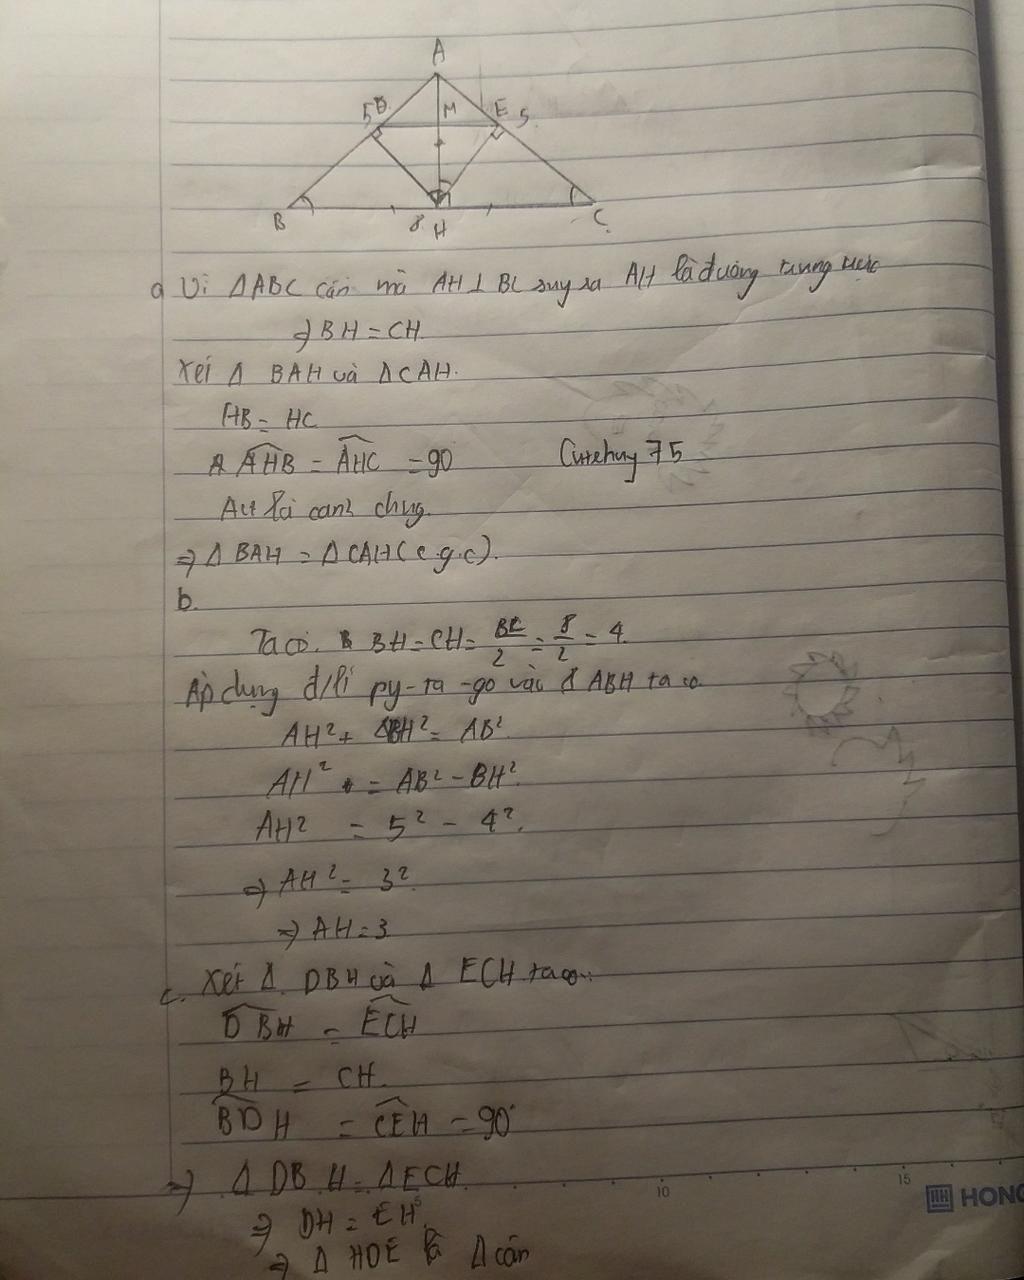 A
5 D M E 5
B 8 H C
a Vì ΔABC cân mà AH⊥BC suy ra AH là đường trung trực
⇒ BH = CH
Xét Δ BAH và ΔCAH.
HB = HC
AHB = AHC = 90
AH là cạnh chng
Cutehuy75
⇒ Δ BAH = Δ CAH (c.g.c).
b.
Ta có. BH = CH = BC/2 = 8/2 = 4
Áp dụng đ/lí py-ta-go vào Δ ABH ta co
AH² + BH² = AB²
AH² = AB² - BH²
AH² = 5² - 4².
⇒ AH² = 3²
⇒ AH = 3
c. Xét Δ. DBH và Δ ECH ta co:
DBH = ECH
BH = CH
BDH = CEH = 90°
⇒ Δ DBH = ΔECH
10 15 HONG
⇒ DH = EH
⇒ Δ HDE là Δ cân